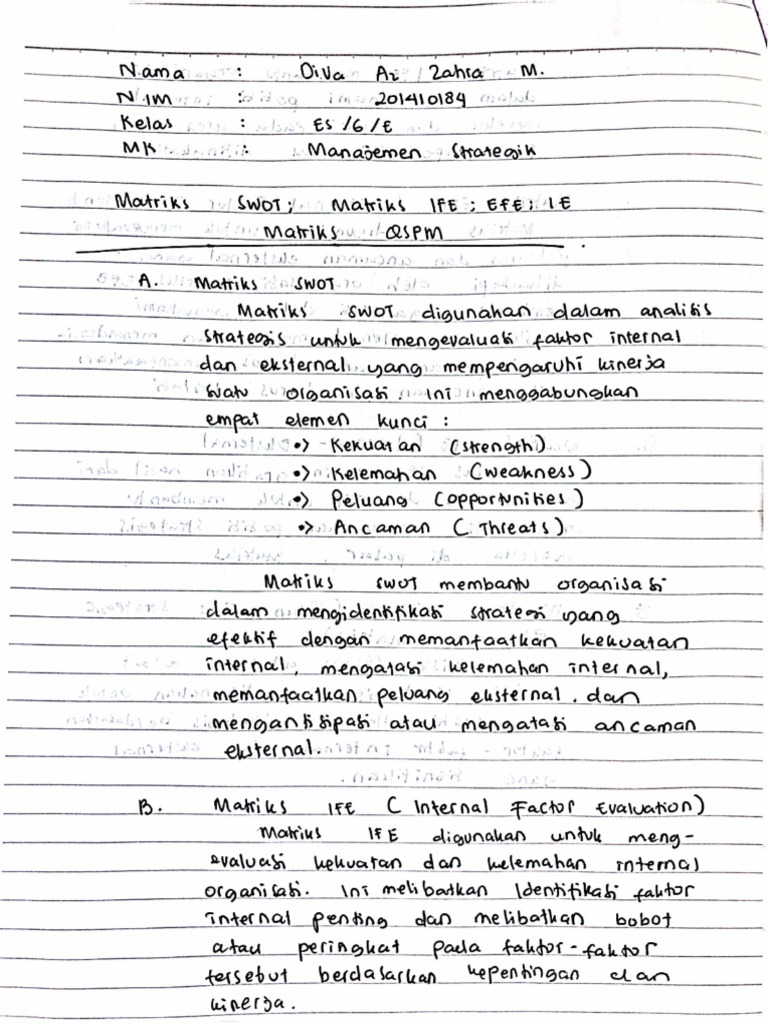 Nama : Diva Az Zahra M.
NIM : 201410184
Kelas : ES/6/E
MK : Manajemen Strategik
Matriks SWOT; Matriks IFE; EFE; IE
Matriks QSPM
A. Matriks SWOT
Matriks SWOT digunakan dalam analisis
strategis untuk mengevaluasi faktor internal
dan eksternal yang mempengaruhi kinerja
suatu organisasi. Ini menggabungkan
empat elemen kunci :
•> Kekuatan (strength)
•> Kelemahan (weakness)
•> Peluang (opportunities)
•> Ancaman (Threats)
Matriks SWOT membantu organisasi
dalam mengidentifikasi strategi yang
efektif dengan memanfaatkan kekuatan
internal, mengatasi kelemahan internal,
memanfaatkan peluang eksternal, dan
mengantisipasi atau mengatasi ancaman
eksternal.
B. Matriks IFE (Internal Factor Evaluation)
Matriks IFE digunakan untuk meng-
evaluasi kekuatan dan kelemahan internal
organisasi. Ini melibatkan Identifikasi faktor
internal penting dan melibatkan bobot
atau peringkat pada faktor-faktor
tersebut berdasarkan kepentingan dan
kinerja.